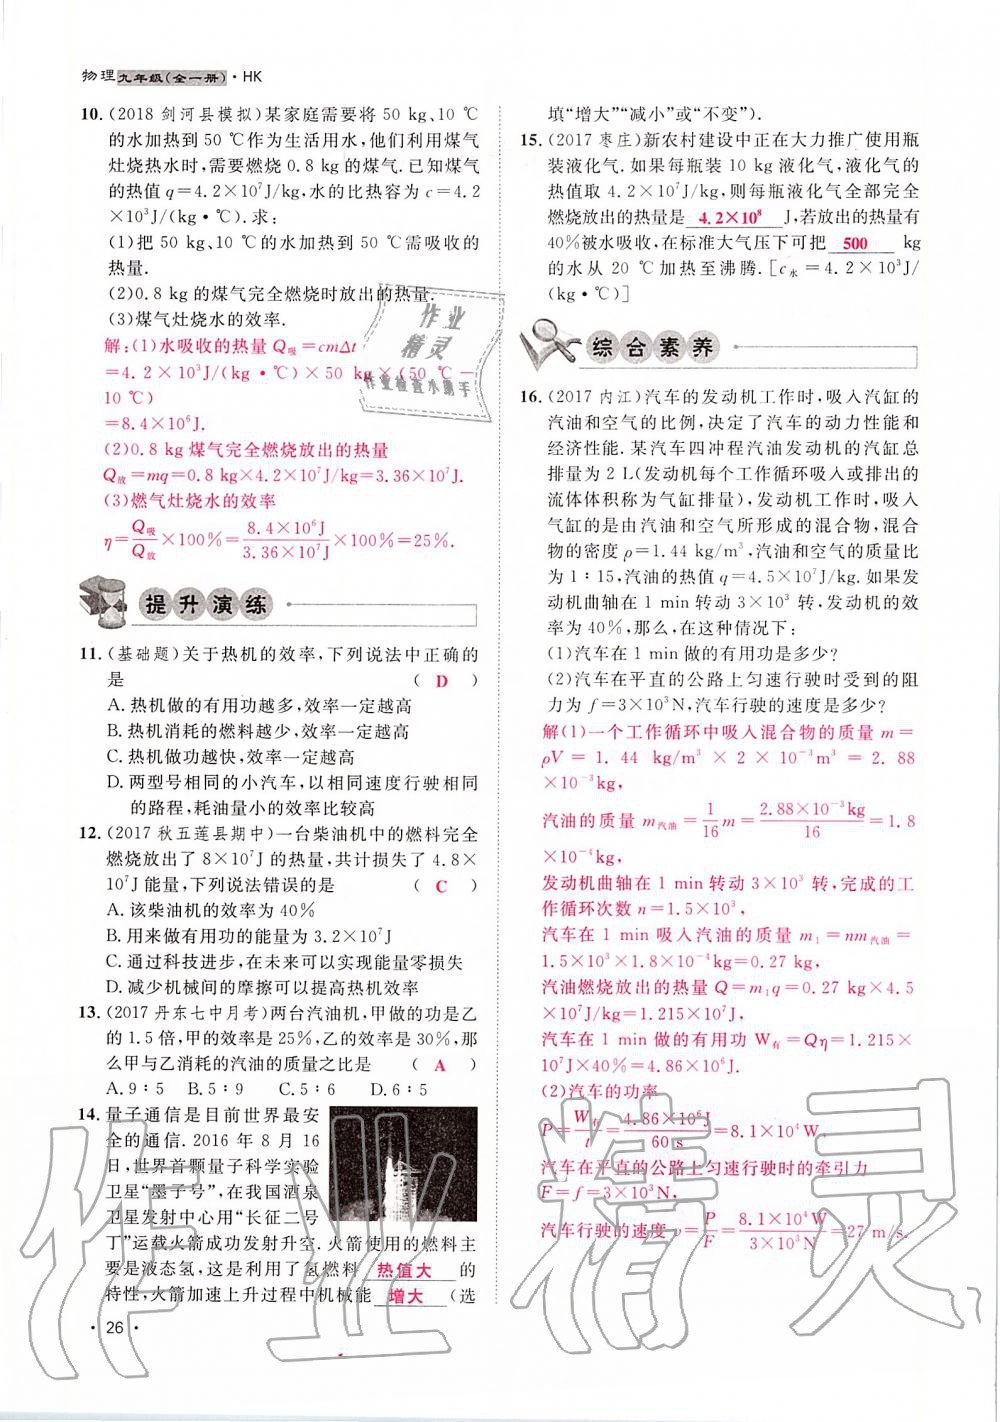 物理九年级(全一册)·HK
10.(2018剑河县模拟)某家庭需要将50 kg、10 ℃
的水加热到50 ℃作为生活用水,他们利用煤气
灶烧热水时,需要燃烧0.8 kg的煤气.已知煤气
的热值q=4.2×10⁷J/kg,水的比热容为c=4.2
×10³J/(kg·℃).求:
(1)把50 kg、10 ℃的水加热到50 ℃需吸收的
热量.
(2)0.8 kg的煤气完全燃烧时放出的热量.
(3)煤气灶烧水的效率.
解:(1)水吸收的热量Q吸=cmΔt
=4.2×10³J/(kg·℃)×50 kg×(50 ℃−
10 ℃)
=8.4×10⁶J.
(2)0.8 kg煤气完全燃烧放出的热量
Q放=mq=0.8 kg×4.2×10⁷J/kg=3.36×10⁷J.
(3)燃气灶烧水的效率
η=Q吸/Q放×100%=8.4×10⁶J/3.36×10⁷J×100%=25%.
提升演练
11.(基础题)关于热机的效率,下列说法中正确的
是 ( D )
A.热机做的有用功越多,效率一定越高
B.热机消耗的燃料越少,效率一定越高
C.热机做功越快,效率一定越高
D.两型号相同的小汽车,以相同速度行驶相同
的路程,耗油量小的效率比较高
12.(2017秋五莲县期中)一台柴油机中的燃料完全
燃烧放出了8×10⁷J的热量,共计损失了4.8×
10⁷J能量,下列说法错误的是 ( C )
A.该柴油机的效率为40%
B.用来做有用功的能量为3.2×10⁷J
C.通过科技进步,在未来可以实现能量零损失
D.减少机械间的摩擦可以提高热机效率
13.(2017丹东七中月考)两台汽油机,甲做的功是乙
的1.5倍,甲的效率是25%,乙的效率是30%,那
么甲与乙消耗的汽油的质量之比是 ( A )
A.9∶5 B.5∶9 C.5∶6 D.6∶5
14.量子通信是目前世界最安
全的通信.2016年8月16
日,世界首颗量子科学实验
卫星“墨子号”,在我国酒泉
卫星发射中心用“长征二号
丁”运载火箭成功发射升空.火箭使用的燃料主
要是液态氢,这是利用了氢燃料 热值大 的
特性,火箭加速上升过程中机械能 增大 (选
·26·
填“增大”“减小”或“不变”).
15.(2017枣庄)新农村建设中正在大力推广使用瓶
装液化气.如果每瓶装10 kg液化气,液化气的
热值取4.2×10⁷J/kg,则每瓶液化气全部完全
燃烧放出的热量是 4.2×10⁸ J,若放出的热量有
40%被水吸收,在标准大气压下可把 500 kg
的水从20 ℃加热至沸腾.[c水=4.2×10³J/
(kg·℃)]
综合素养
16.(2017内江)汽车的发动机工作时,吸入汽缸的
汽油和空气的比例,决定了汽车的动力性能和
经济性能.某汽车四冲程汽油发动机的汽缸总
排量为2 L(发动机每个工作循环吸入或排出的
流体体积称为气缸排量),发动机工作时,吸入
气缸的是由汽油和空气所形成的混合物,混合
物的密度ρ=1.44 kg/m³,汽油和空气的质量比
为1∶15,汽油的热值q=4.5×10⁷J/kg.如果发
动机曲轴在1 min转动3×10³转,发动机的效
率为40%,那么,在这种情况下:
(1)汽车在1 min做的有用功是多少?
(2)汽车在平直的公路上匀速行驶时受到的阻
力为f=3×10³N,汽车行驶的速度是多少?
解(1)一个工作循环中吸入混合物的质量m=
ρV=1.44 kg/m³×2×10⁻³m³=2.88
×10⁻³kg,
汽油的质量m汽油=1/16m=2.88×10⁻³kg/16=1.8
×10⁻⁴kg,
发动机曲轴在1 min转动3×10³转,完成的工
作循环次数n=1.5×10³,
汽车在1 min吸入汽油的质量m₁=nm汽油=
1.5×10³×1.8×10⁻⁴kg=0.27 kg,
汽油燃烧放出的热量Q=m₁q=0.27 kg×4.5
×10⁷J/kg=1.215×10⁷J,
汽车在1 min做的有用功W有=Qη=1.215×
10⁷J×40%=4.86×10⁶J.
(2)汽车的功率
P=W有/t=4.86×10⁶J/60 s=8.1×10⁴W,
汽车在平直的公路上匀速行驶时的牵引力
F=f=3×10³N,
汽车行驶的速度v=P/F=8.1×10⁴W/3×10³N=27 m/s.
作业
精灵
作业检查小助手
作业精灵